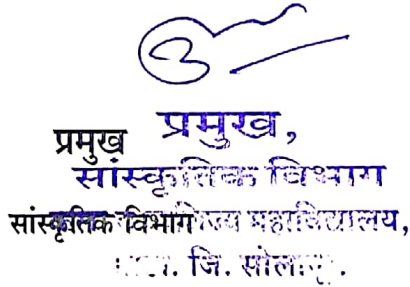 प्रमुख प्रमुख,
सांस्कृतिक विभाग
सांस्कृतिक विभाग महाविद्यालय,
जि. सोलापूर.